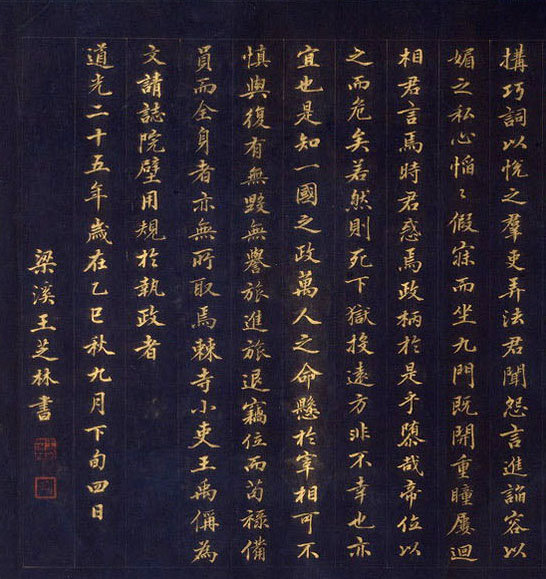 搆巧詞以悅之羣吏弄法君聞怨言進諂容以
媚之私心慆〻假寐而坐九門既開重瞳屢迴
相君言焉時君惑焉政柄於是乎隳哉帝位以
之而危矣若然則死下獄投遠方非不幸也亦
宜也是知一國之政萬人之命懸於宰相可不
慎與復有無毀無譽旅進旅退竊位而苟祿備
員而全身者亦無所取焉棘寺小吏王禹偁為
文請誌院壁用規於執政者
道光二十五年歲在乙巳秋九月下旬四日
梁溪王芝林書